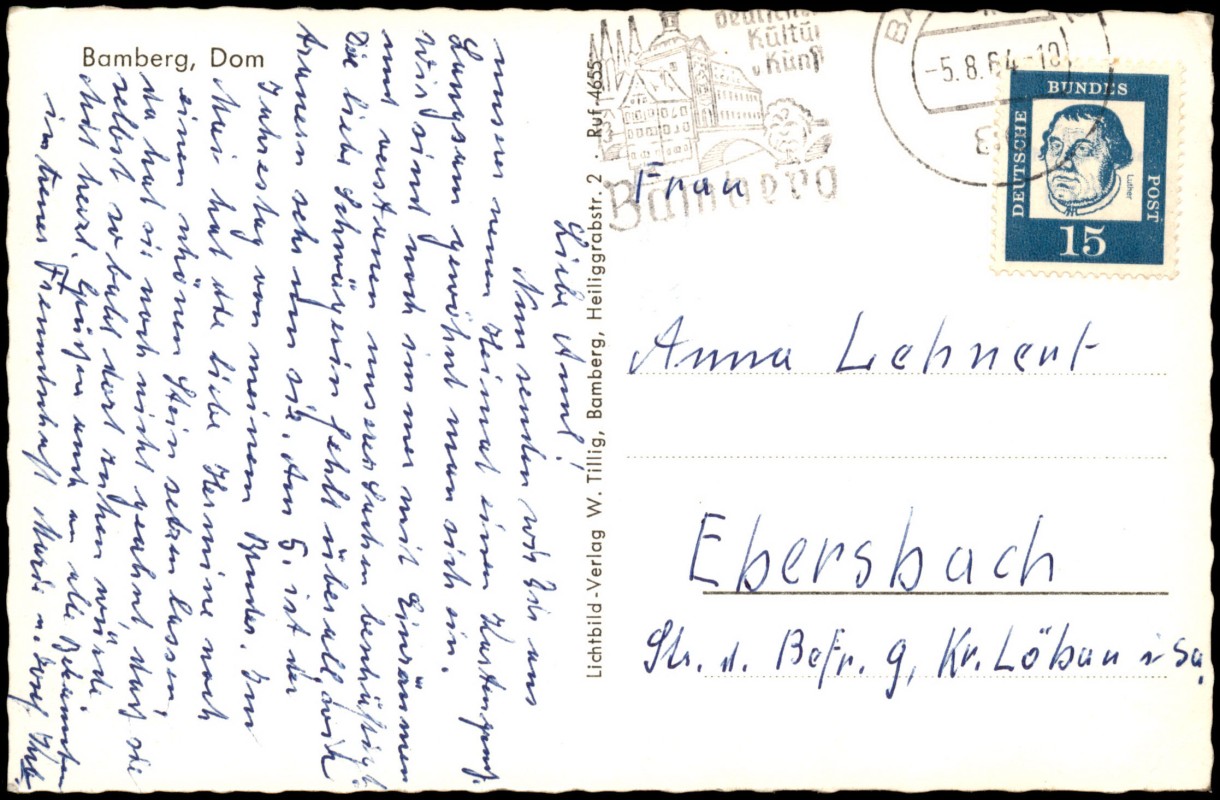 Bamberg, Dom
Liebe Anna!
Nun senden wir Dir aus
unserer neuen Heimat einen Kartengruß.
Langsam gewöhnt man sich ein.
Wir sind noch immer mit Einräumen
und unserer Sachen beschäftigt
Die liebe Schwägerin fehlt überall, wir
trauern sehr um sie. Am 5. ist der
Jahrestag von meinem Bruder. Im
Mai hat die liebe Hermine noch
einen schönen Stein setzen lassen
da hat sie noch nicht geahnt, daß sie
selbst so bald dort ruhen würde.
Mit herzl. Grüßen auch an alle Bekannten
in treuer Freundschaft Maria u. Josef
Lichtbild-Verlag W. Tillig, Bamberg, Heiliggrabstr. 2 · Ruf 4655
deutscher
Kultur
u Kunst
Bamberg
-5.8.64-10
DEUTSCHE
BUNDES
POST
Luther
15
Frau
Anna Lehnert
Ebersbach
Str. d. Befr. 9, Kr. Löbau i Sa.